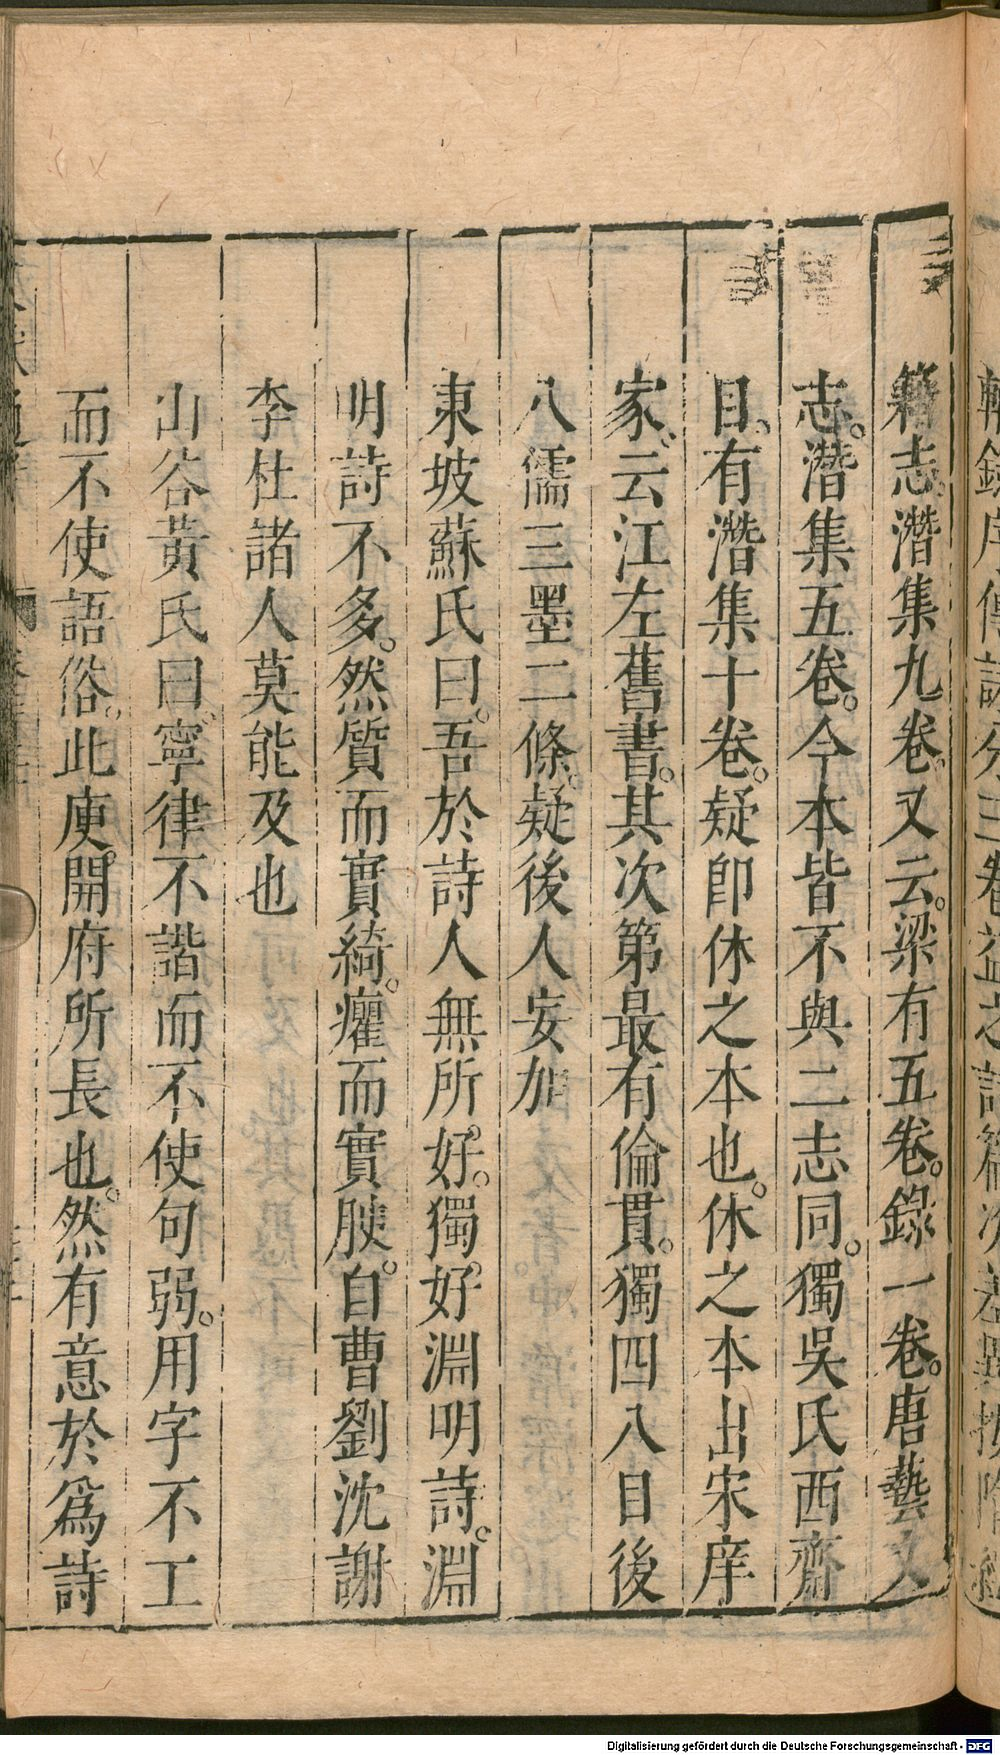 籍志。潛集九卷。又云。梁有五卷。錄一卷。唐藝文
志。潛集五卷。今本皆不與二志同。獨吳氏西齋
目。有潛集十卷。疑卽休之本也。休之本出宋庠
家。云江左舊書。其次第最有倫貫。獨四八目後
八儒三墨二條。疑後人妄加
東坡蘇氏曰。吾於詩人無所好。獨好淵明詩。淵
明詩不多。然質而實綺。癯而實腴。自曹劉沈謝
李杜諸人莫能及也
山谷黃氏曰。寧律不諧而不使句弱。用字不工
而不使語俗。此庾開府所長也。然有意於爲詩
Digitalisierung gefördert durch die Deutsche Forschungsgemeinschaft - DFG